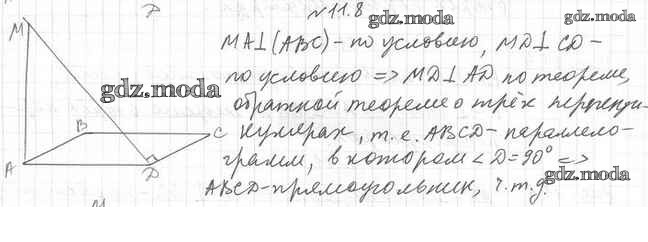 №11.8
gdz.moda
gdz.moda
M
MA⊥(ABC) - по условию, MD⊥CD -
по условию => MD⊥AD по теореме,
gdz.moda
обратной теореме о трёх перпенди-
B
C
кулярах, т.е. ABCD - параллело-
A
D
грамм, в котором <D=90° =>
gdz.moda
ABCD-прямоугольник, ч.т.д.